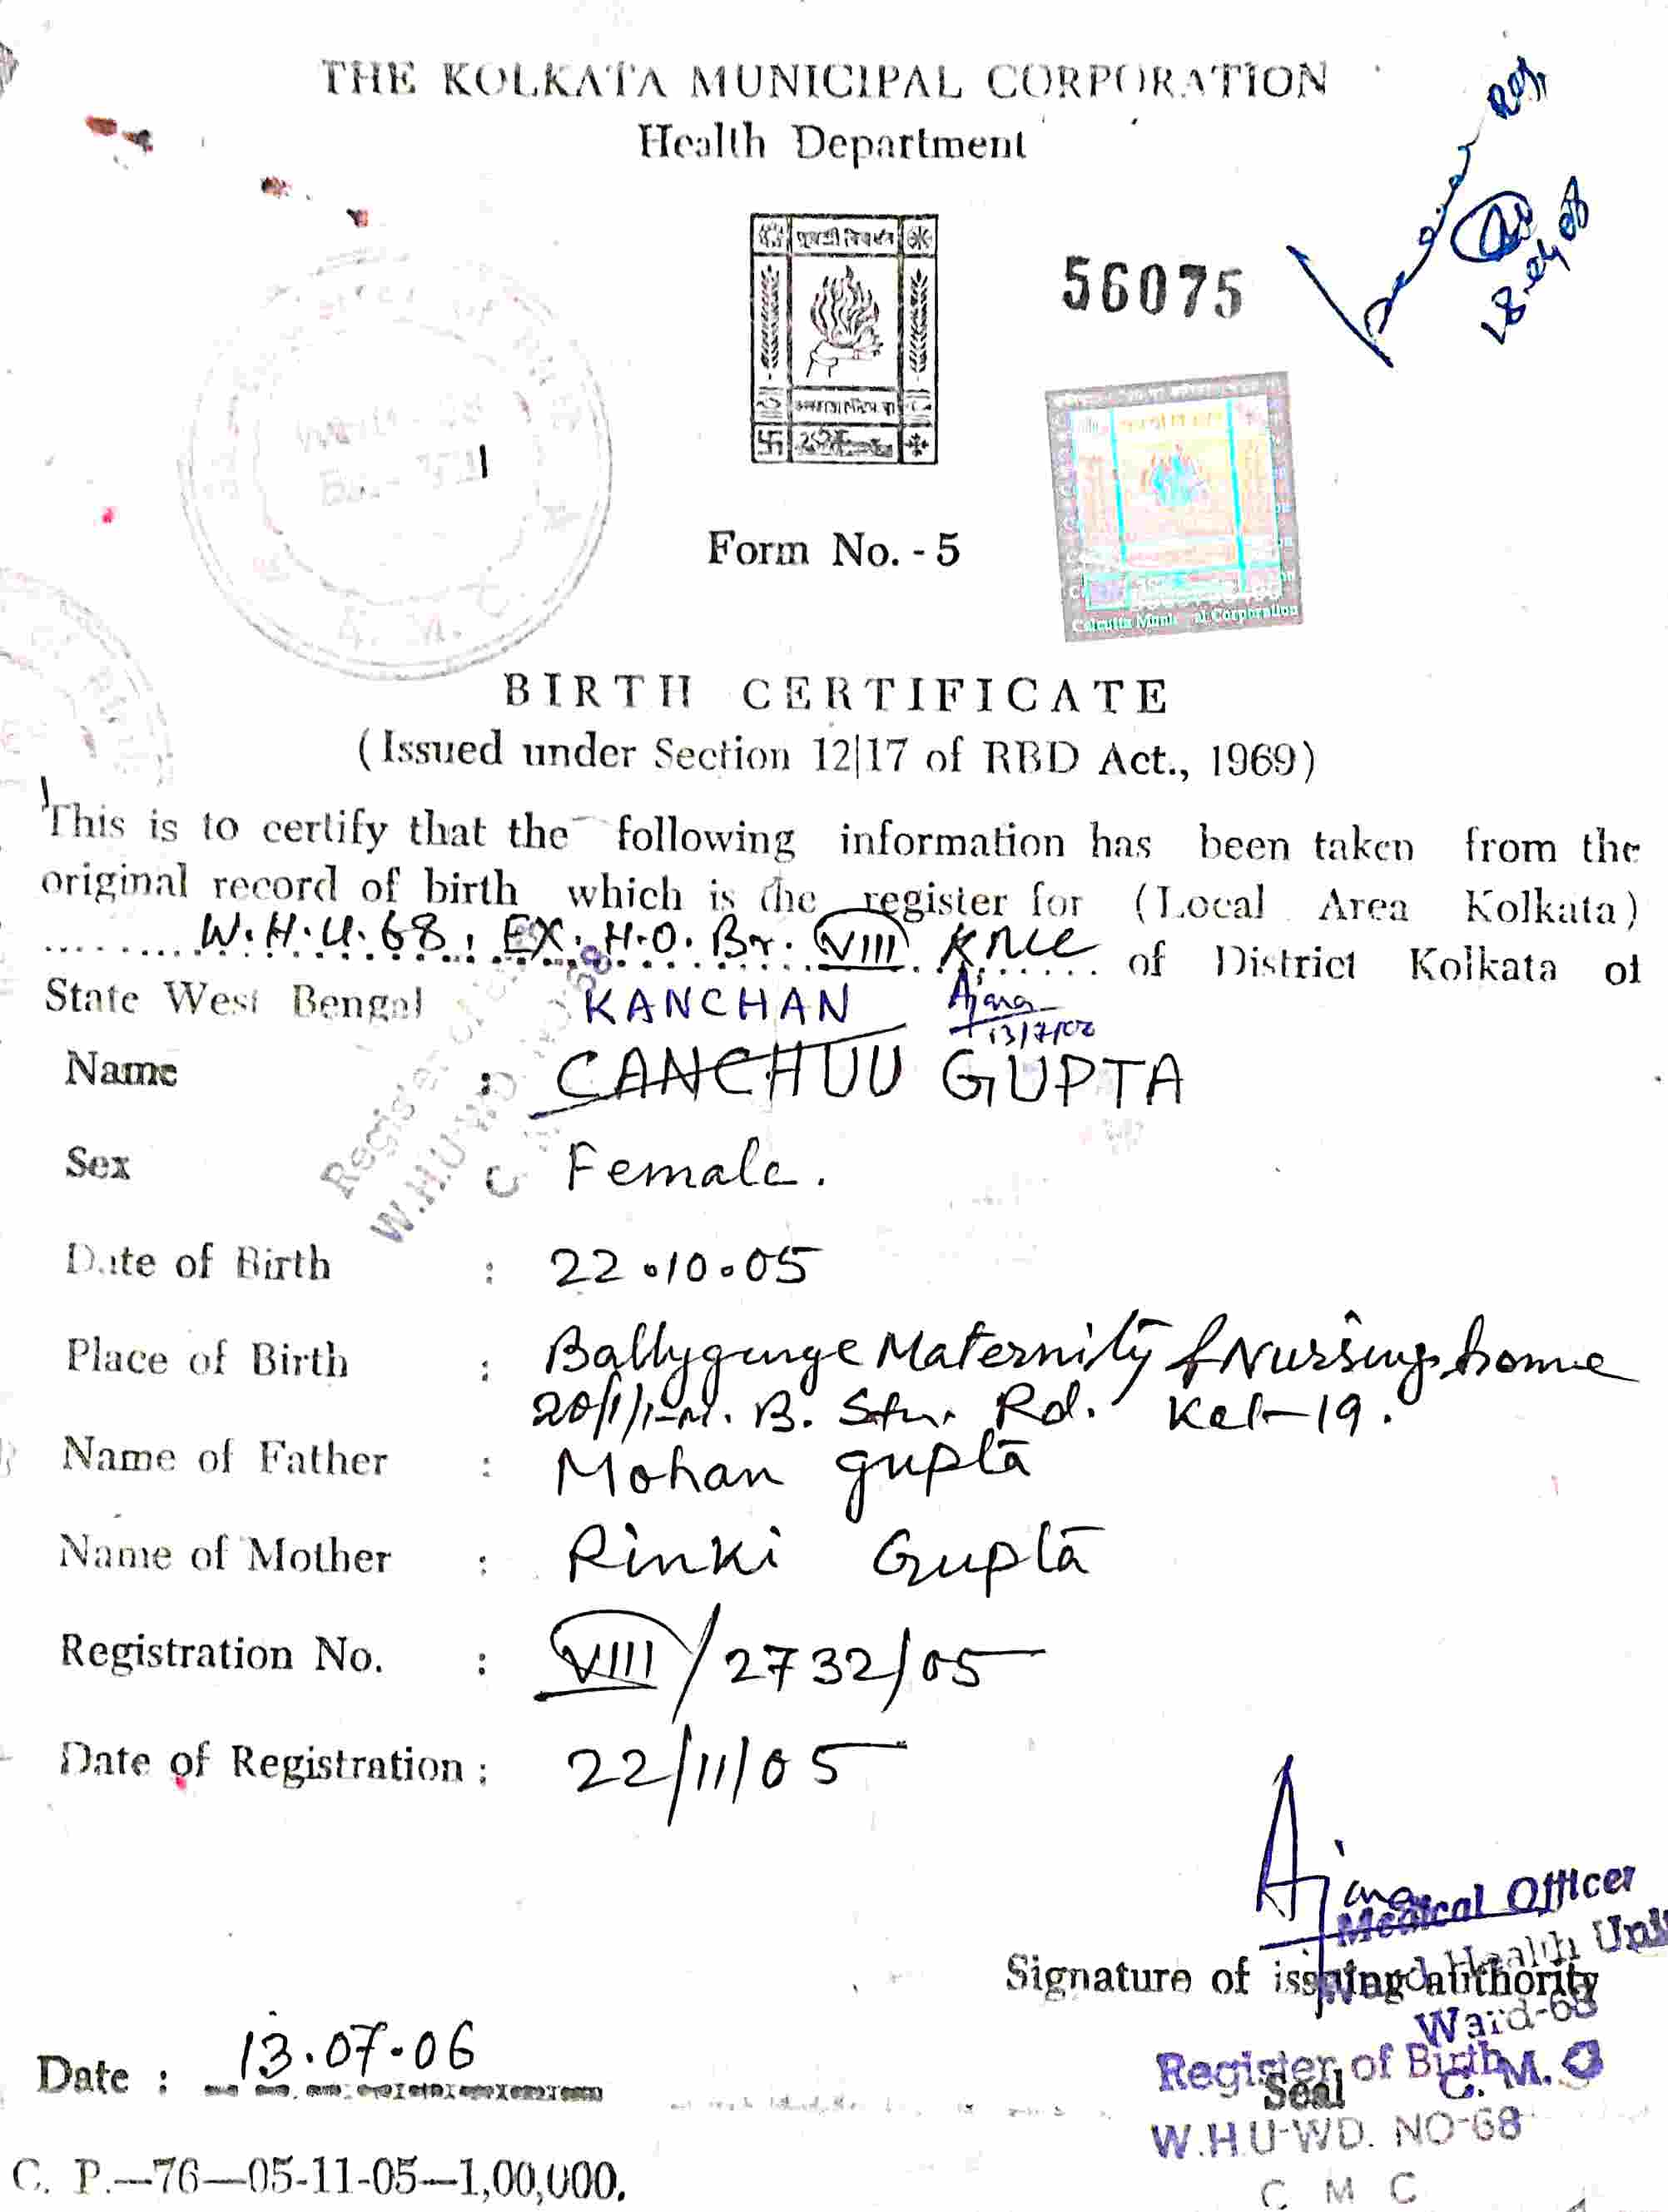 THE KOLKATA MUNICIPAL CORPORATION
Health Department
56075
Form No. - 5
Calcutta Corporation
BIRTH CERTIFICATE
(Issued under Section 12|17 of RBD Act., 1969)
This is to certify that the following information has been taken from the
original record of birth which is the register for (Local Area Kolkata)
W.H.U. 68, EX. H.O. Br. VIII KMC of District Kolkata of
State West Bengal KANCHAN
13/7/06
Name : CANCHUU GUPTA
Sex : Female.
Date of Birth : 22.10.05
Place of Birth : Ballygunge Maternity & Nursing home
20/1/1-M. B. Stn. Rd. Kol-19.
Name of Father : Mohan gupta
Name of Mother : Rinki Gupta
Registration No. : VIII/2732/05
Date of Registration : 22/11/05
Medical Officer
Ward Health Unit
Signature of issuing authority
Ward-68
C. M. C
Date : 13.07.06
Register of Birth
Seal
W.H.U-WD. NO-68
C M C
C. P.—76—05-11-05—1,00,000.